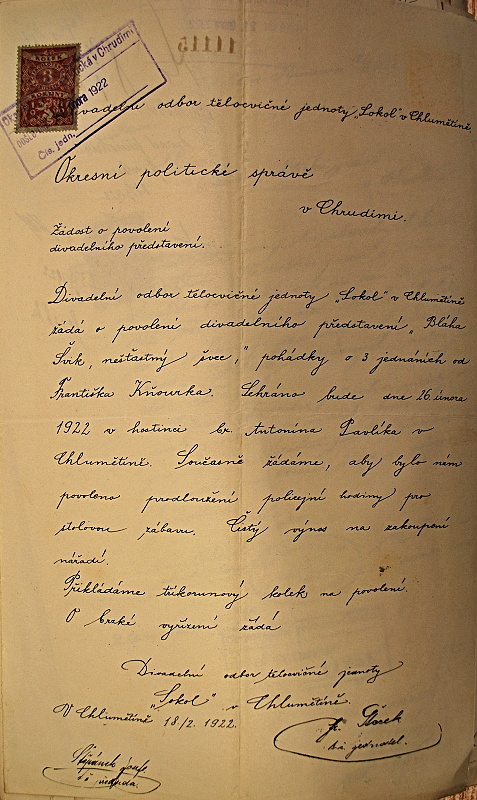 11115
1922
Čís. jedn.
Divadelní odbor tělocvičné jednoty „Sokol" v Chlumětíně
Okresní politické správě
v Chrudimi.
Žádost o povolení
divadelního představení.
Divadelní odbor tělocvičné jednoty „Sokol" v Chlumětíně
žádá o povolení divadelního představení „Bláha
Švik, nešťastný švec," pohádky o 3 jednáních od
Františka Kňourka. Sehráno bude dne 26. února
1922 v hostinci br. Antonína Pavlíka v
Chlumětíně. Současně žádáme, aby bylo nám
povoleno prodloužení policejní hodiny pro
stolovou zábavu. Čistý výnos na zakoupení
nářadí.
Přikládáme tříkorunový kolek na povolení.
O brzké vyřízení žádá
Divadelní odbor tělocvičné jednoty
„Sokol" v Chlumětíně.
V Chlumětíně 18/2. 1922.
jednatel.
Štěpánek Josef